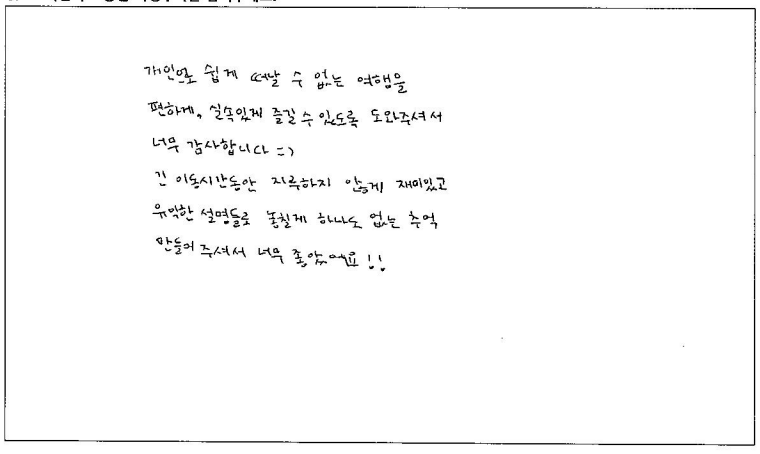 개인으로 쉽게 떠날 수 없는 여행을
편하게, 실속있게 즐길 수 있도록 도와주셔서
너무 감사합니다 =)
긴 이동시간동안 지루하지 않게 재미있고
유익한 설명들로 놓칠게 하나도 없는 추억
만들어 주셔서 너무 좋았어요!!